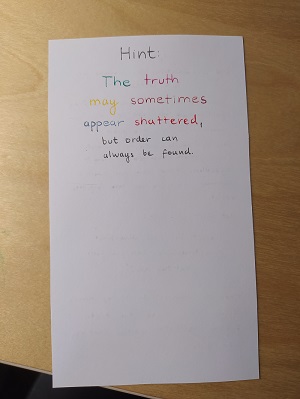 Hint:
The truth
may sometimes
appear shattered,
but order can
always be found.